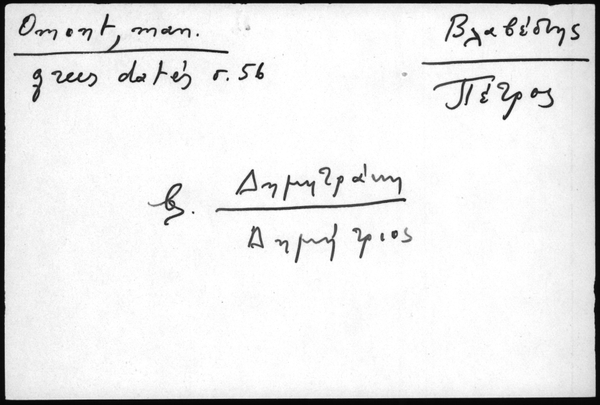 Omont, man.
grecs datés σ. 56
Βλαβέσης
Πέτρος
βλ. Δημητράκη
Δημήτριος